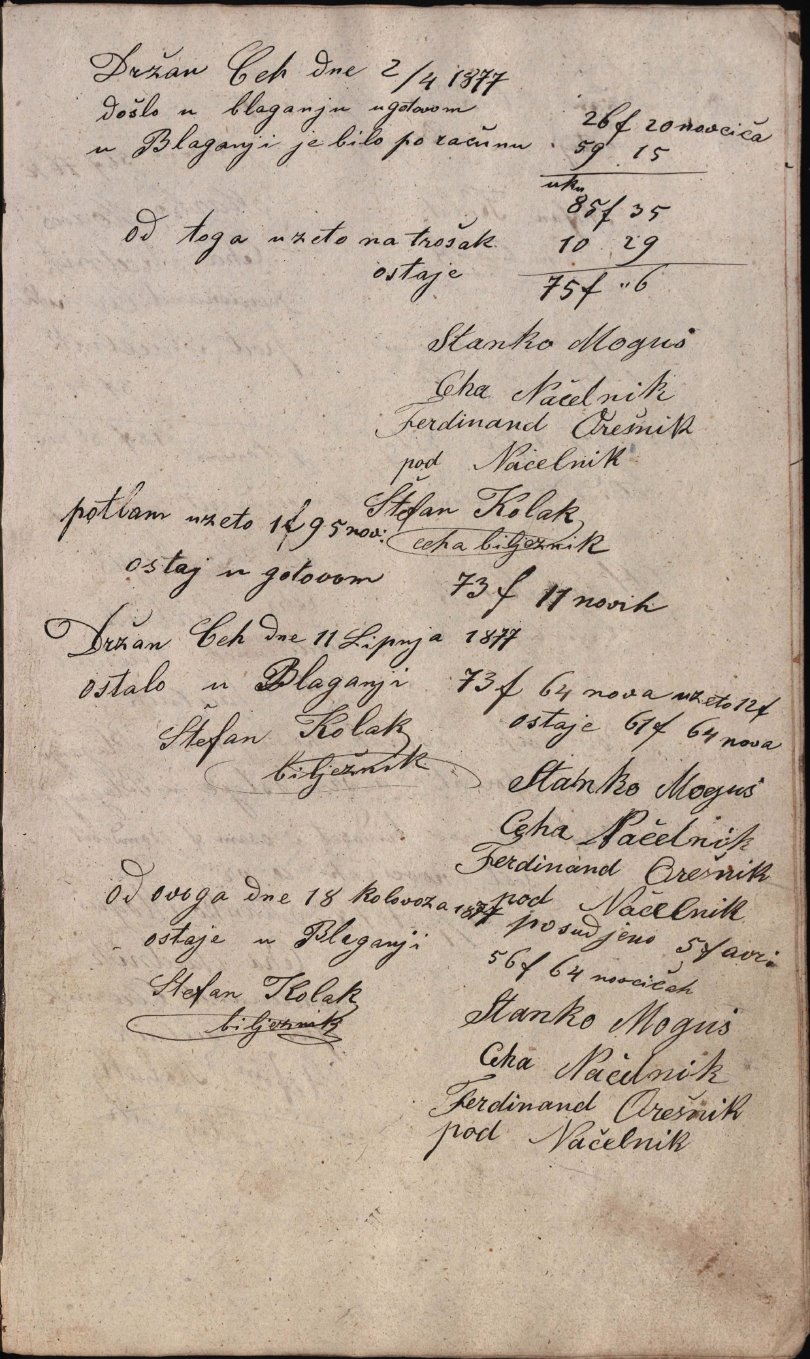 Držan Ceh dne 2/4 1877
došlo u blaganju ugotovom 26f 20 novčića
u Blaganji je bilo po računu 59 . 15
uku 85f 35
od toga uzeto na trošak 10 . 29
ostaje 75f "6
Stanko Moguš
Ceha Načelnik
Ferdinand Orešnik
pod Načelnik
Štefan Kolak
ceha bilježnik
potlam uzeto 1f 95 nov:
ostaj u gotovom 73f 11 novih
Držan Ceh dne 11 Lipnja 1877
ostalo u Blaganji 73f 64 nova uzeto 12f
ostaje 61f 64 nova
Štefan Kolak
bilježnik
Stanko Moguš
Ceha Načelnik
Ferdinand Orešnik
pod Načelnik
od ovoga dne 18 kolovoza 1877 posudjeno 5f
ostaje u Blaganji 56f 64 novčićah
Štefan Kolak
bilježnik
Stanko Moguš
Ceha Načelnik
Ferdinand Orešnik
pod Načelnik